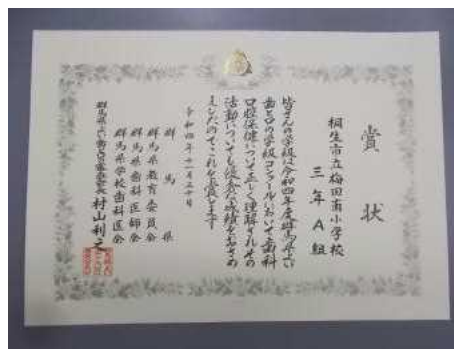 賞状
桐生市立梅田南小学校
三年A組
皆さんの学級は令和四年度群馬県よい
歯と口の学級コンクールにおいて歯科
口腔保健について正しく理解されその
活動についても優秀な成績をおさめ
ましたのでこれを賞します
令和四年十一月二十日
群馬県
群馬県教育委員会
群馬県歯科医師会
群馬県学校歯科医会
村山利之